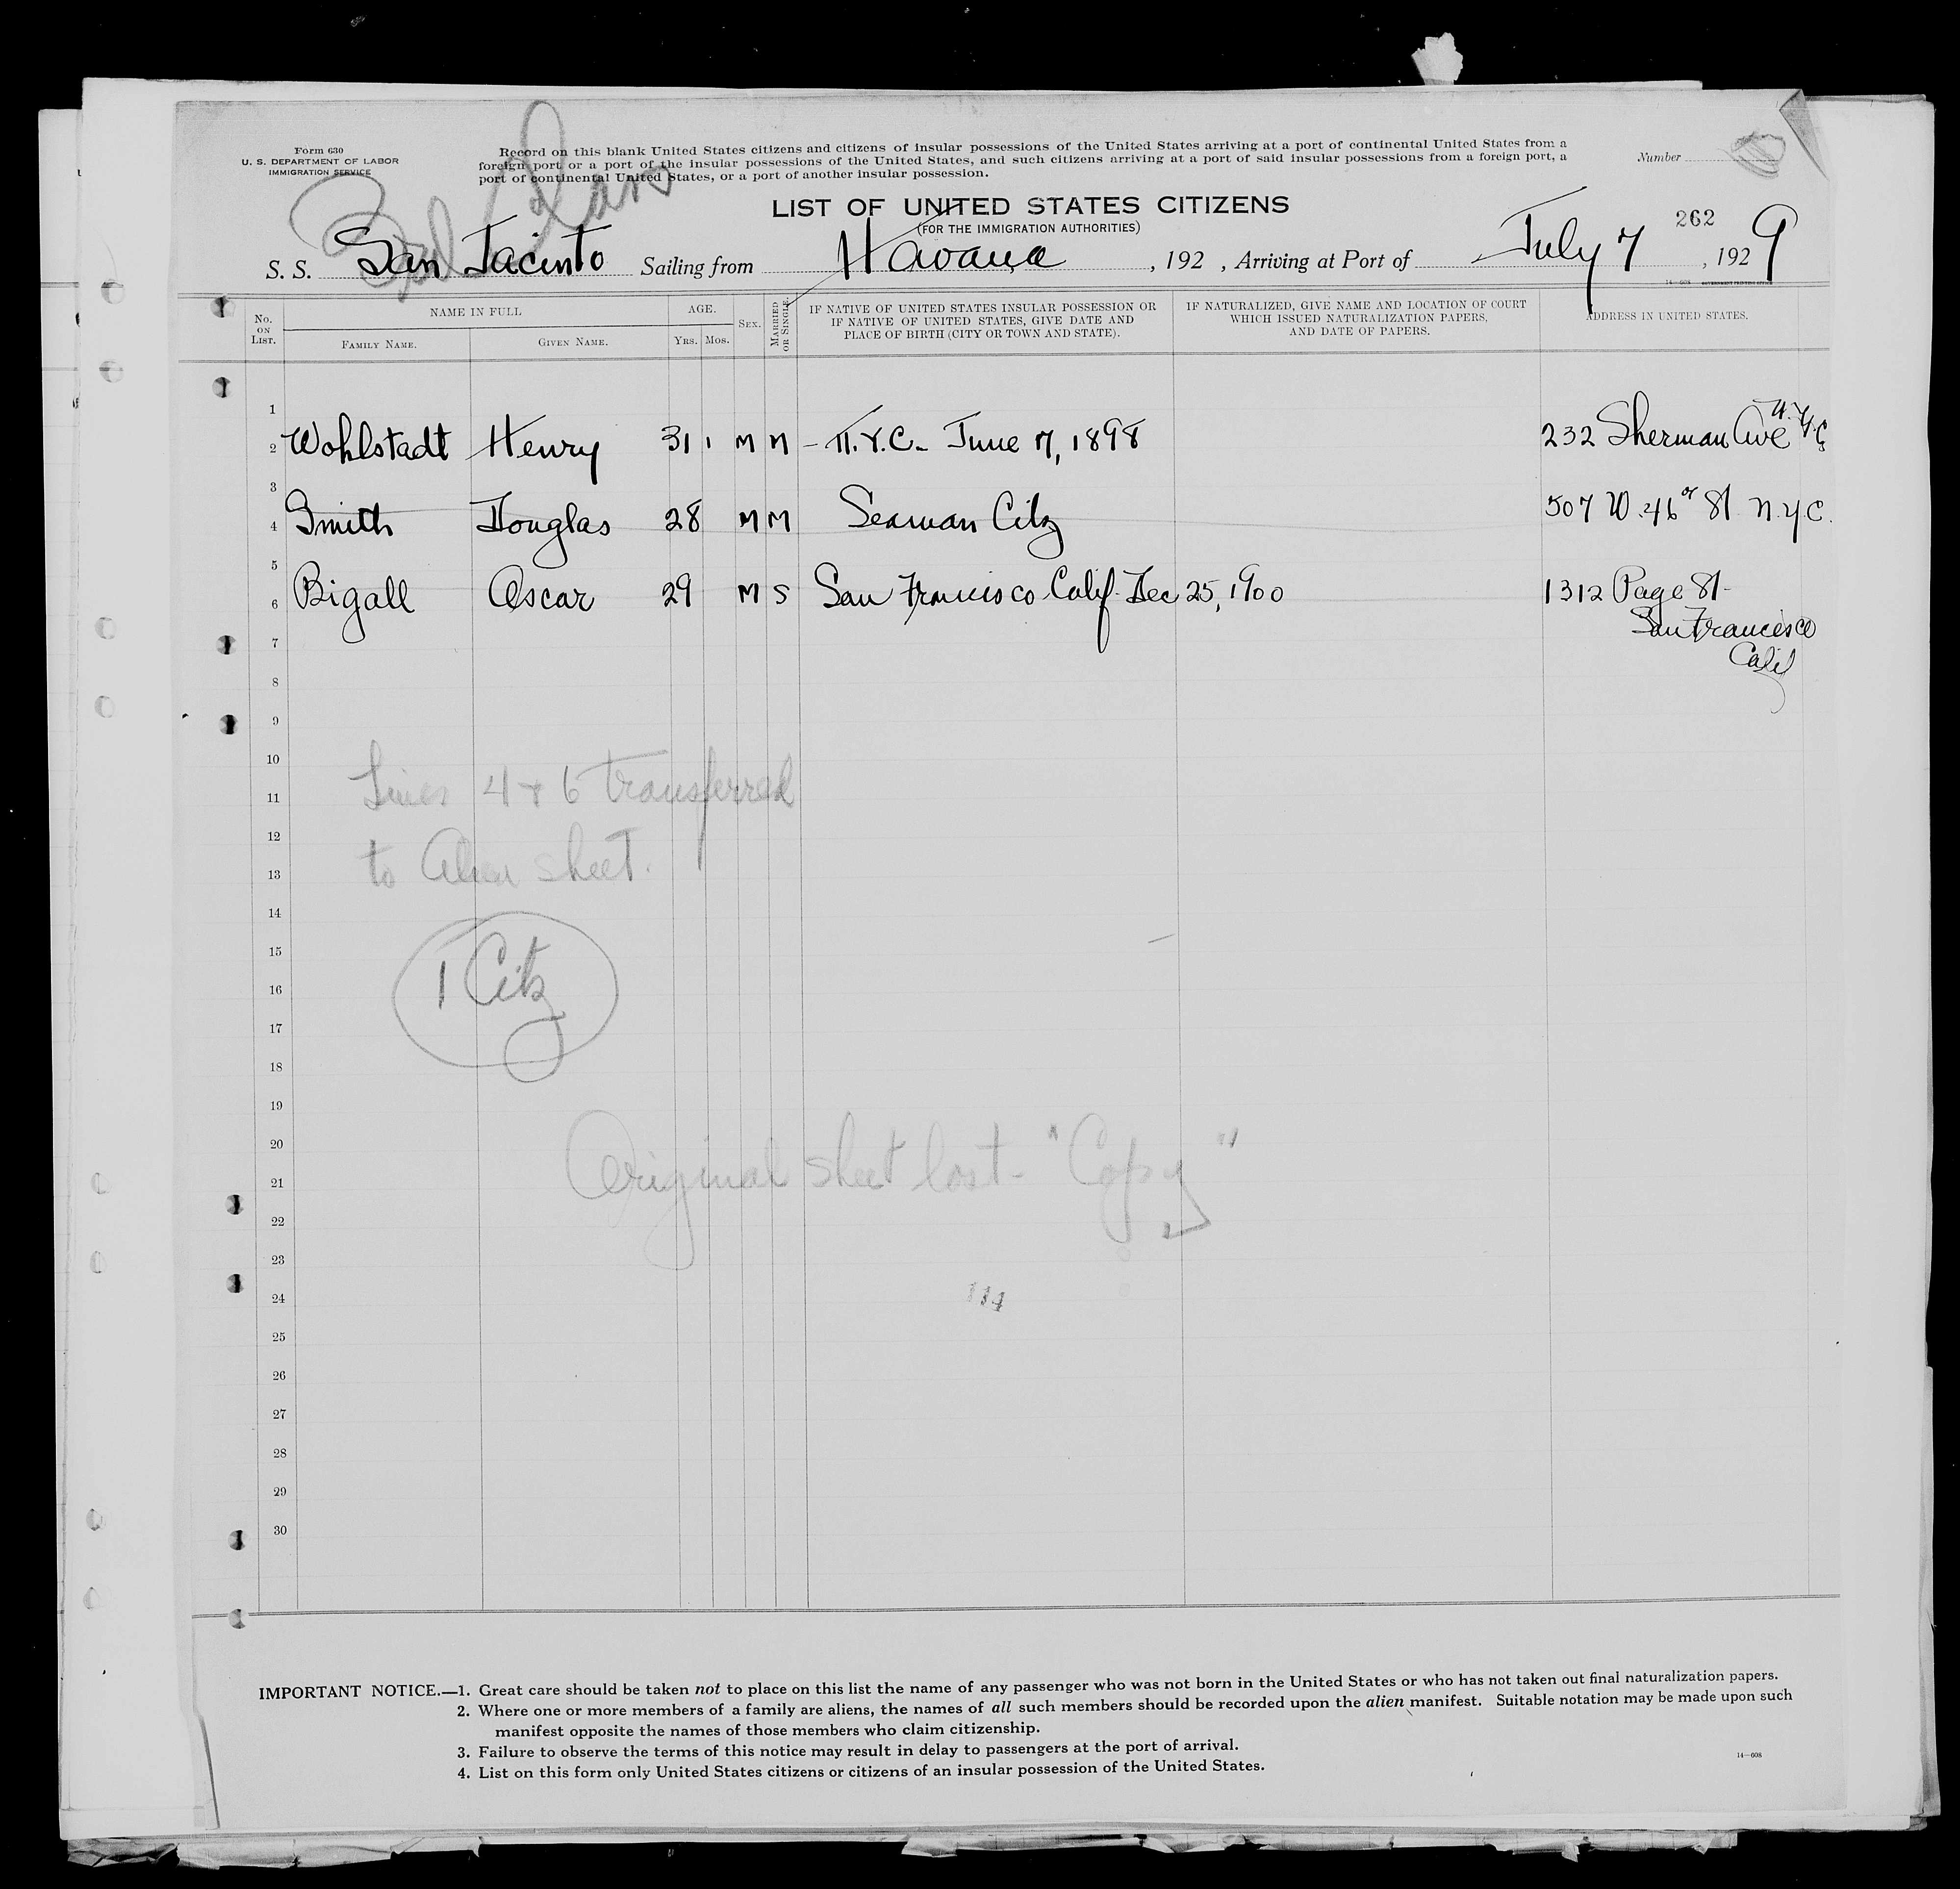 Form 630
U. S. DEPARTMENT OF LABOR
IMMIGRATION SERVICE
Record on this blank United States citizens and citizens of insular possessions of the United States arriving at a port of continental United States from a
foreign port or a port of the insular possessions of the United States, and such citizens arriving at a port of said insular possessions from a foreign port, a
port of continental United States, or a port of another insular possession.
Number
LIST OF UNITED STATES CITIZENS
(FOR THE IMMIGRATION AUTHORITIES)
262
S. S. San Jacinto Sailing from Havana, 192 , Arriving at Port of July 7, 1929
14—608 GOVERNMENT PRINTING OFFICE
No. ON LIST.
NAME IN FULL
FAMILY NAME. GIVEN NAME.
AGE.
YRS. MOS.
SEX.
MARRIED OR SINGLE.
IF NATIVE OF UNITED STATES INSULAR POSSESSION OR
IF NATIVE OF UNITED STATES, GIVE DATE AND
PLACE OF BIRTH (CITY OR TOWN AND STATE).
IF NATURALIZED, GIVE NAME AND LOCATION OF COURT
WHICH ISSUED NATURALIZATION PAPERS,
AND DATE OF PAPERS.
ADDRESS IN UNITED STATES.
1
2 Wohlstadt Henry 31 1 M M - N.Y.C. - June 7, 1898 232 Sherman Ave N.Y.C.
3
4 Smith Douglas 28 M M Seaman Citz 507 W. 46 St N.Y.C.
5
6 Bigall Oscar 29 M S San Francisco Calif. Dec 25, 1900 1312 Page St -
7 San Francisco
Calif
8
9
10
11 Lines 4 & 6 transferred
12
13 to Alien sheet.
14
15
16 1 Citz
17
18
19
20
21 Original sheet lost - "Copy"
22
23
24
25
26
27
28
29
30
IMPORTANT NOTICE.—1. Great care should be taken not to place on this list the name of any passenger who was not born in the United States or who has not taken out final naturalization papers.
2. Where one or more members of a family are aliens, the names of all such members should be recorded upon the alien manifest. Suitable notation may be made upon such
manifest opposite the names of those members who claim citizenship.
3. Failure to observe the terms of this notice may result in delay to passengers at the port of arrival.
4. List on this form only United States citizens or citizens of an insular possession of the United States.
14—608